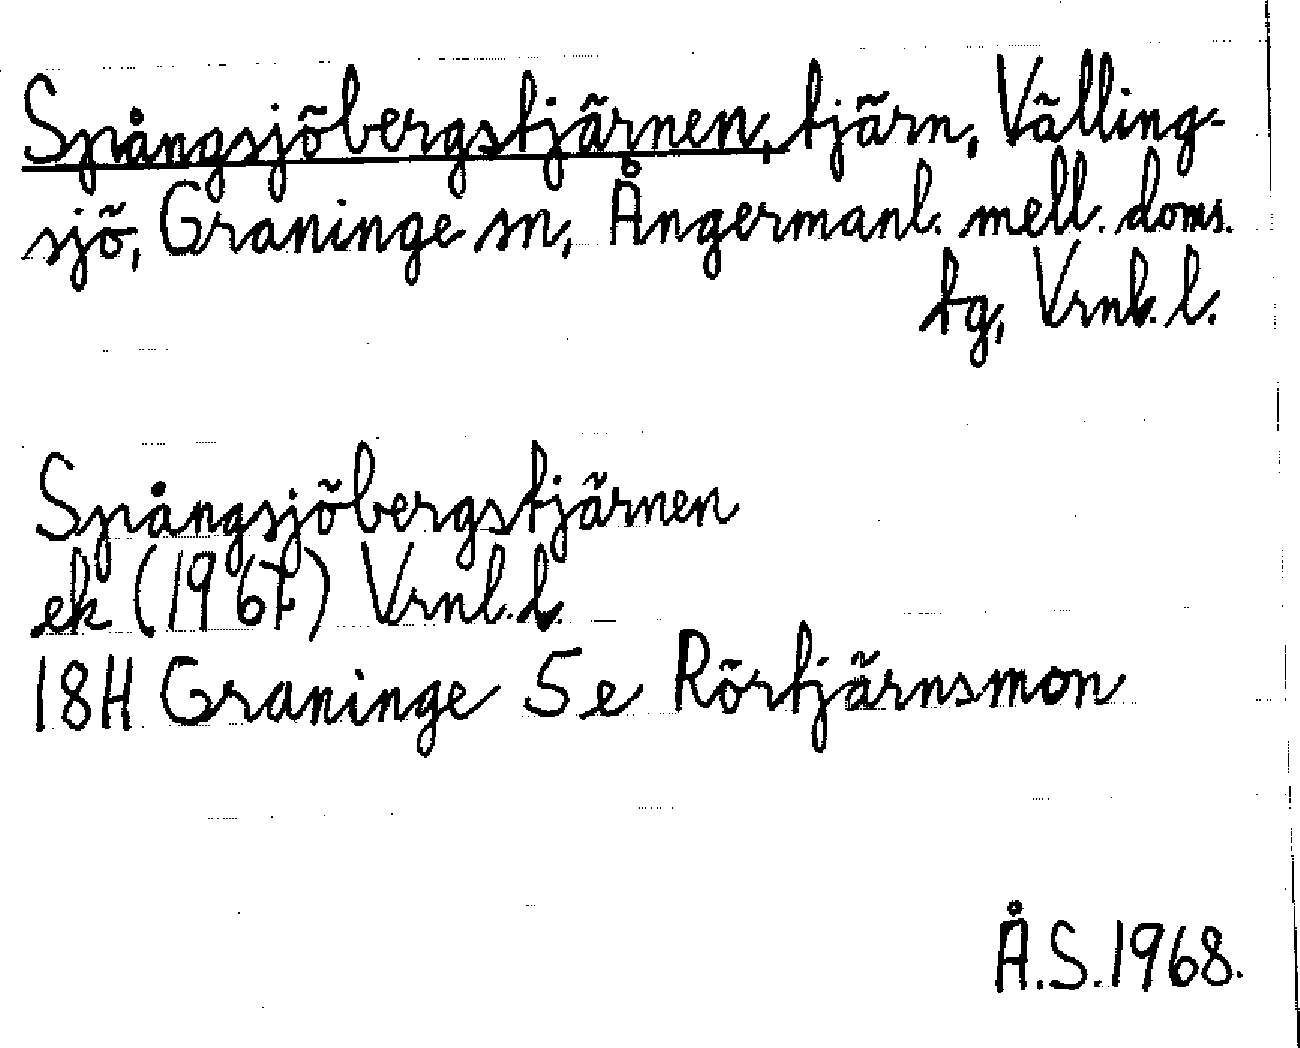 Spångsjöbergstjärnen, tjärn, Välling-
sjö, Graninge sn, Ångermanl. mell. doms.
tg, Vrnl. l.
Spångsjöbergstjärnen
ek (1967) Vrnl. l.
18H Graninge 5e Rörtjärnsmon
Å.S. 1968.